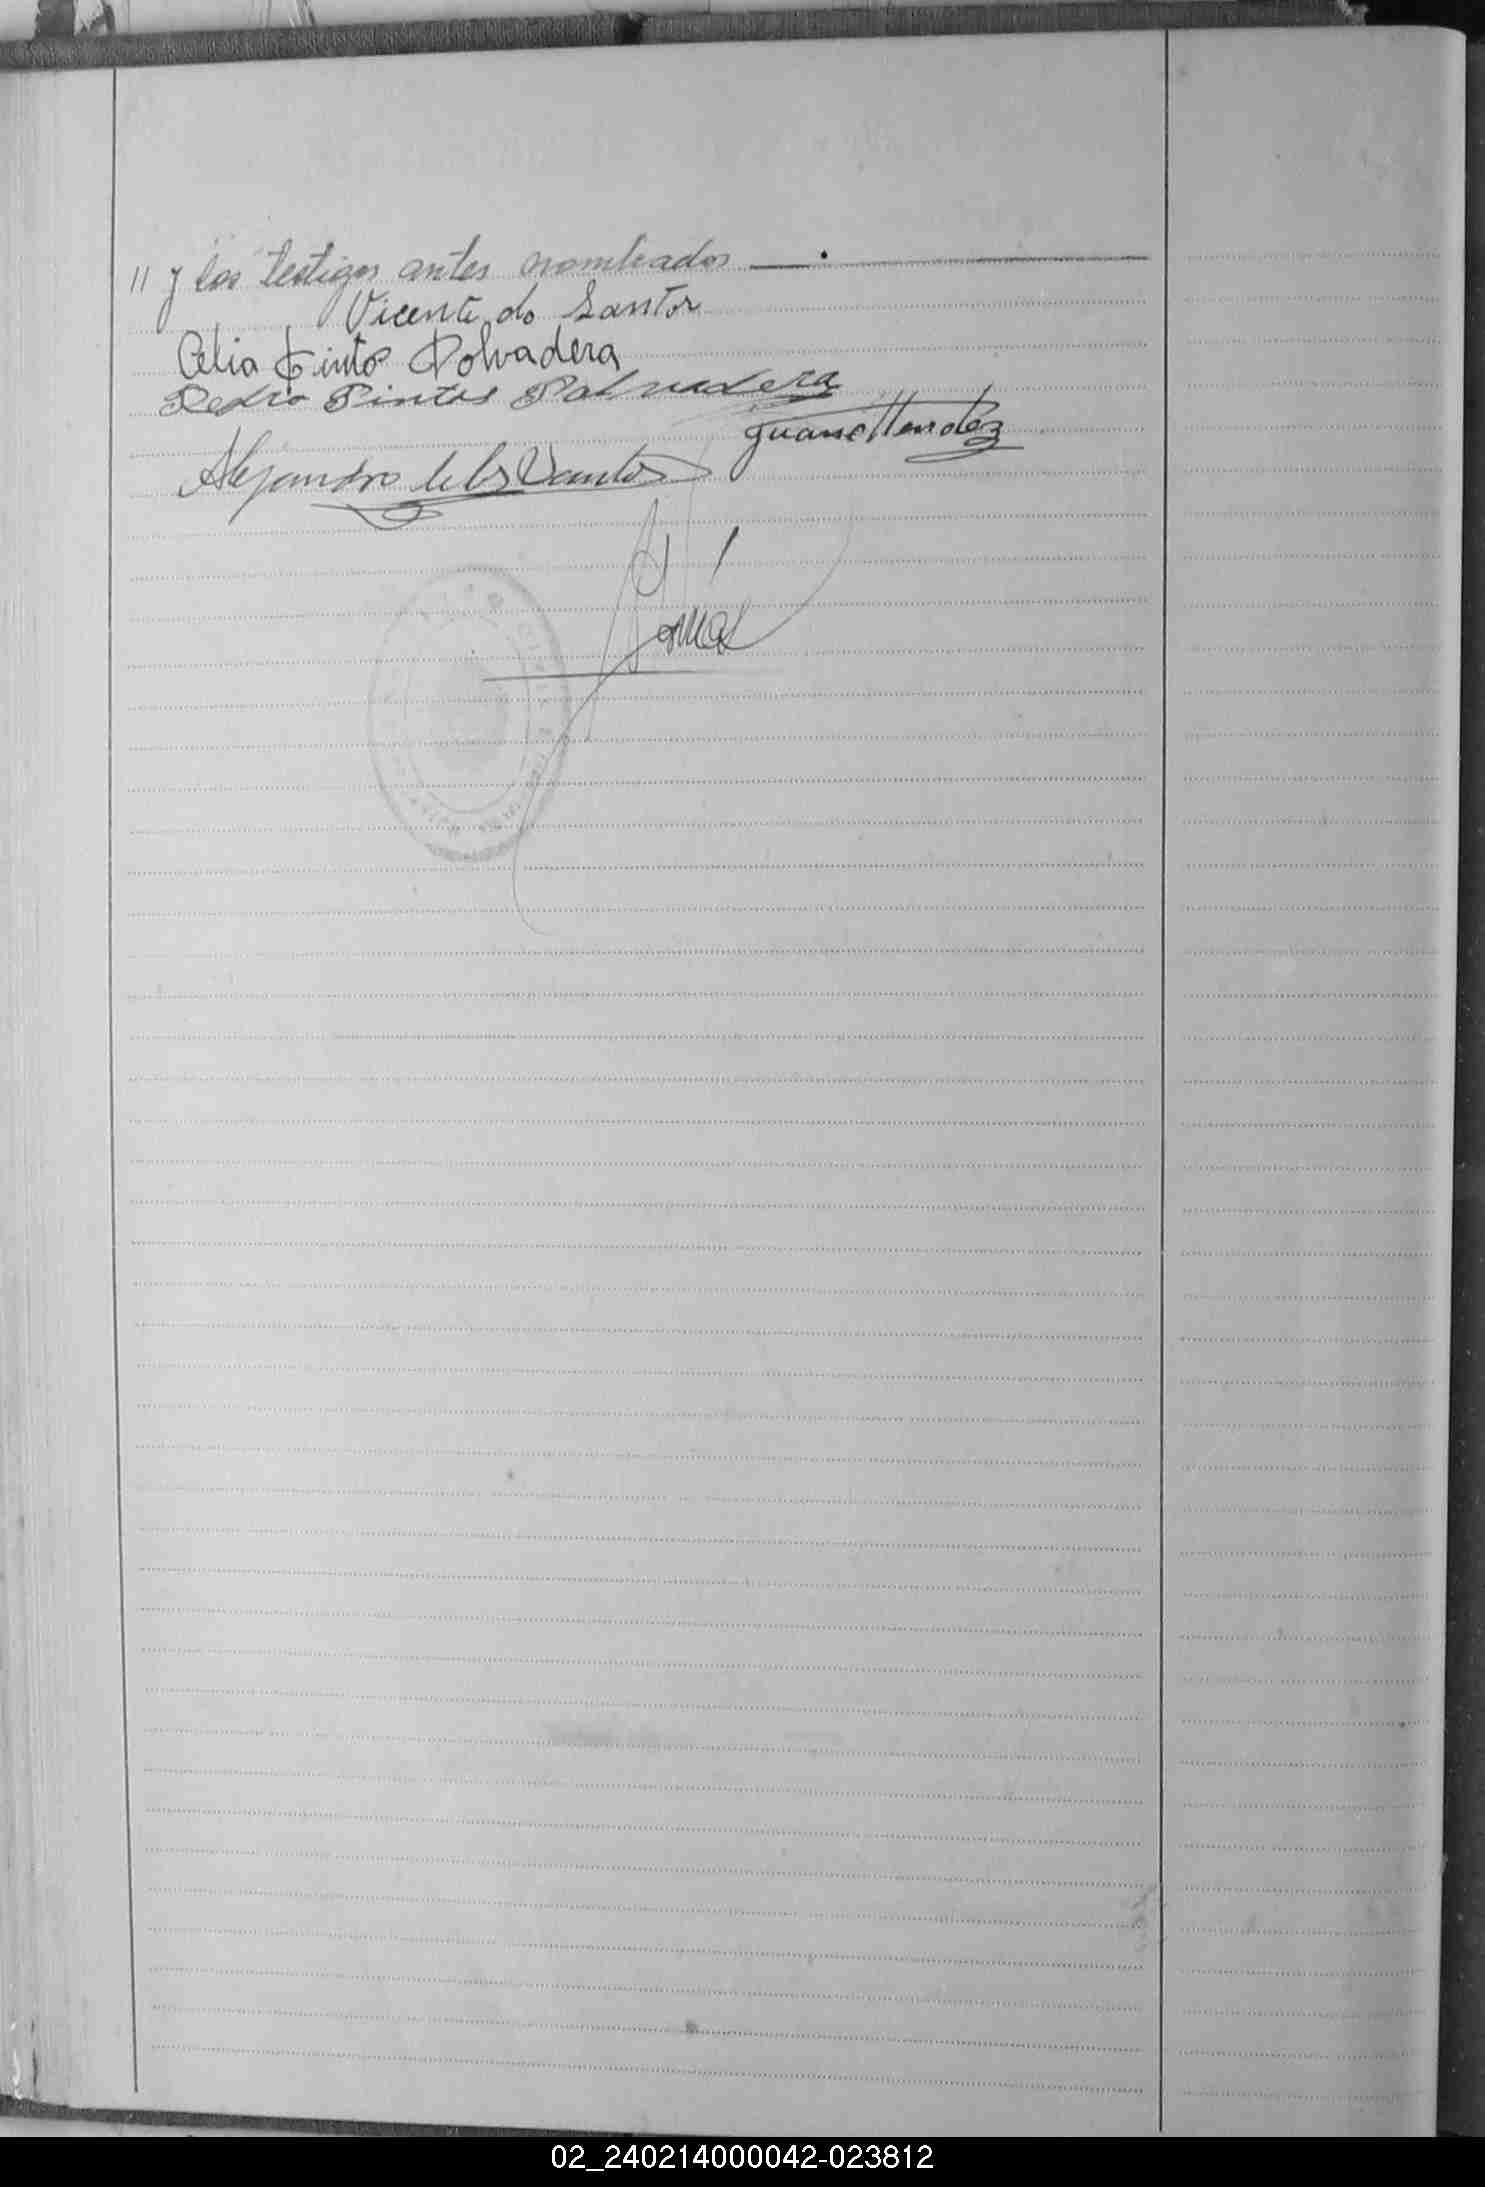 " y los testigos antes nombrados
Vicente do Santos
Celia Pinto Polvadera
Pedro Pintos Polvadera
Juan Mendez
Alejandro de los Santos
02_240214000042-023812